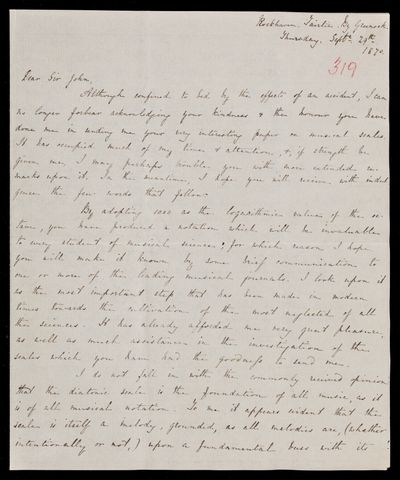 Rockhaven. Fairlie. By Greenock.
Thursday. Septr. 29th.
1870.
319
Dear Sir John,
Although confined to bed by the effects of an accident, I can
no longer forbear acknowledging your kindness & the honour you have
done me in sending me your very interesting paper on musical scales.
It has occupied much of my time & attention, &, if strength be
given me, I may perhaps trouble you with more extended re-
marks upon it. In the meantime, I hope you will receive with indul
gence the few words that follow.
By adopting 1000 as the logarithmic value of the oc-
tave, you have produced a notation which will be invaluable
to every student of musical science; for which reason I hope
you will make it known by some brief communication to
one or more of the leading musical journals. I look upon it
as the most important step that has been made in modern
times towards the cultivation of the most neglected of all
the sciences. It has already afforded me very great pleasure,
as well as much assistance in the investigation of the
scales which you have had the goodness to send me.
I do not fall in with the commonly received opinion
that the diatonic scale is the foundation of all music, as it
is of all musical notation. To me it appears evident that the
scale is itself a melody, grounded, as all melodies are (whether
intentionally or not,) upon a fundamental bass with its